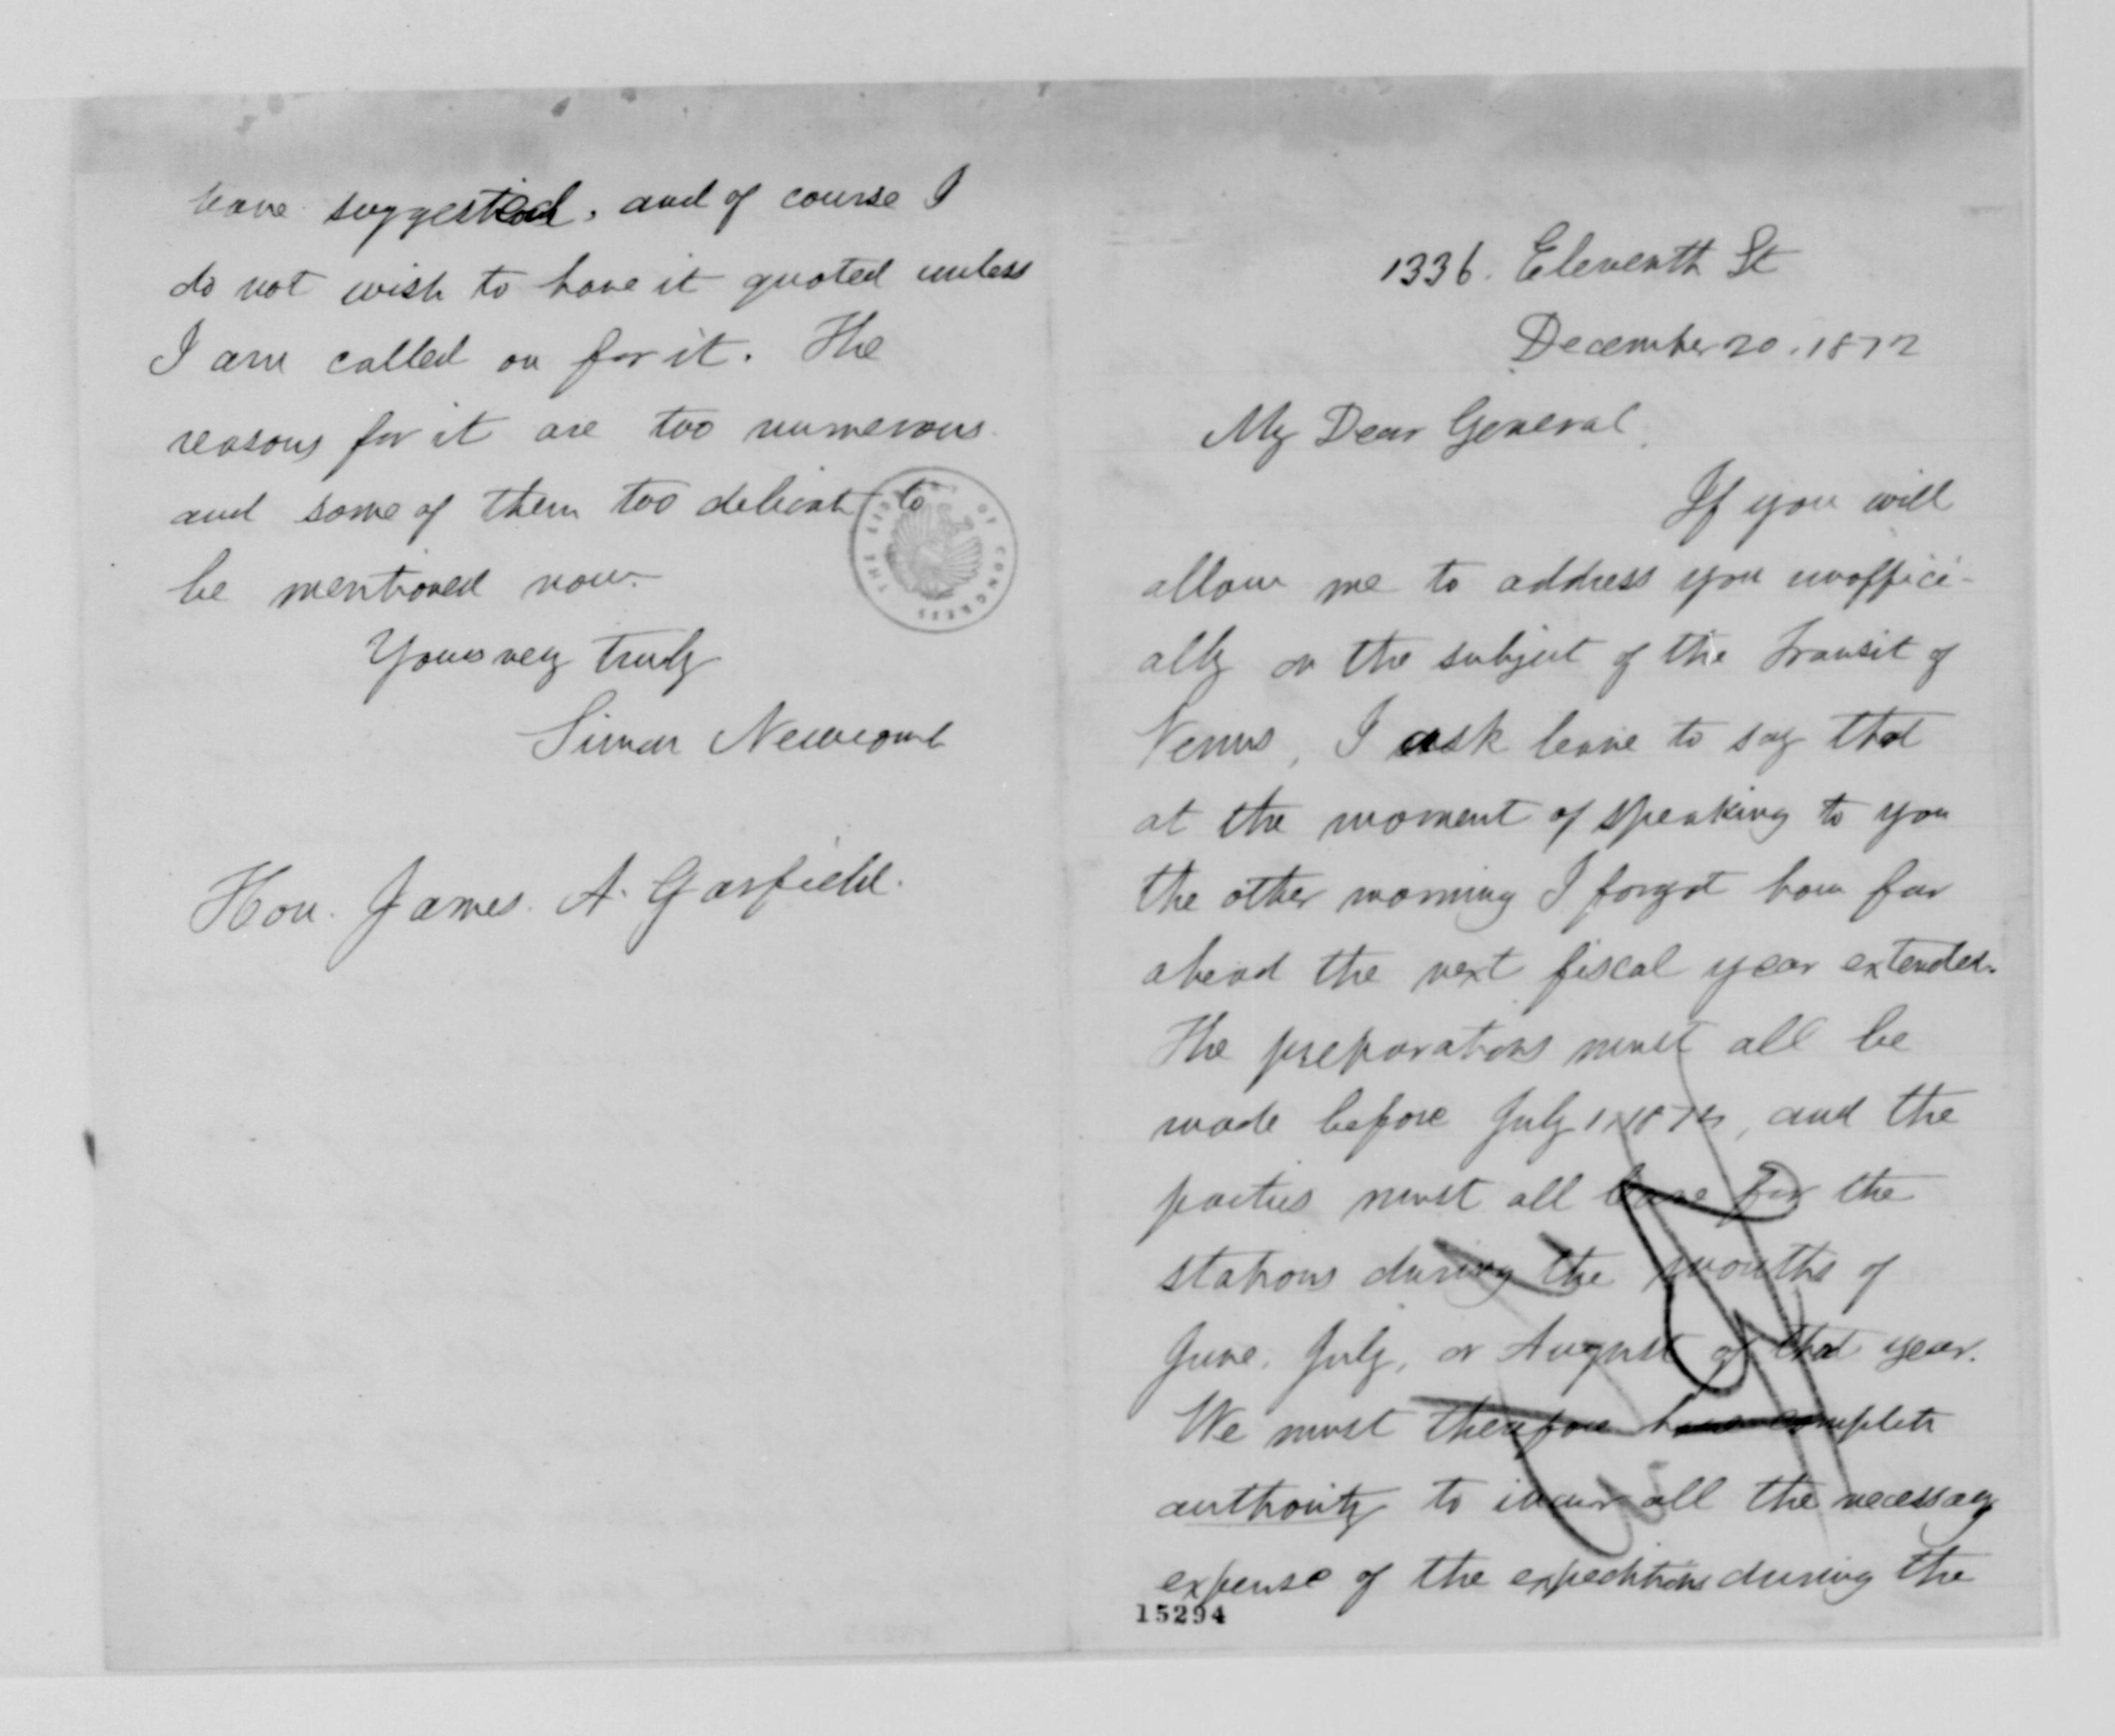 have suggested, and of course I
do not wish to have it quoted unless
I am called on for it. The
reasons for it are too numerous
and some of them too delicate to
be mentioned now.
Yours very truly
Simon Newcomb
Hon. James. A. Garfield.
THE LIBRARY OF CONGRESS
1336. Eleventh St
December 20, 1872
My Dear General,
If you will
allow me to address you unoffici-
ally on the subject of the Transit of
Venus, I ask leave to say that
at the moment of speaking to you
the other morning I forgot how far
ahead the next fiscal year extended.
The preparations must all be
made before July 1, 1874, and the
parties must all leave for the
stations during the months of
June, July, or August of that year.
We must therefore have complete
authority to incur all the necessary
expense of the expeditions during the
15294